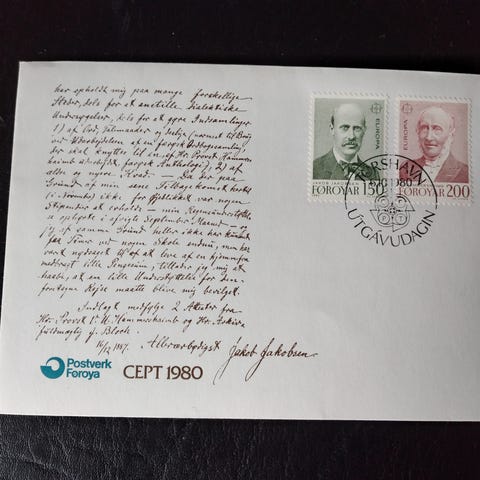 har opholdt mig paa mange forskellige
Steder, dels for at anstille dialektiske
Undersøgelser, dels for at gøre Indsamlinger
1) af Ord, Talemaader og
ved Udarbejdelsen af en færøisk Ordbogssamling
der skal knyttes til en af Hr. Provst Hammers-
haimb udarbejdet færøisk Anthologi), 2) af
ældre og nyere Kvad. — Da der paa
Grund af min sene Tilbagekomst hertil
(i November) ikke for Øjeblikket var nogen
Stipendier at erholde – min Regensunderstøttelse
opløb i afvigte September Maaned – og
jeg af samme Grund heller ikke har kunnet
faa Timer ved nogen Skole endnu, men har
været nødsaget til at at leve af en hjemmefra
medbragt lille Pengesum, tillader jeg mig at
haabe, at en lille Understøttelse for den
foretagne Rejse maatte blive mig bevilget.
Indlagt medfølge 2 Attester fra
Hr. Provst V. U. Hammershaimb og Hr.
J. Bloch.
16/12 1887. Allerærbødigst Jakob Jakobsen.
Postverk
Føroya
CEPT 1980
EUROPA
JAKOB JAKOBSEN
FØROYAR 150
EUROPA
FØROYAR 200
TÓRSHAVN
1980
ÚTGÁVUDAGIN